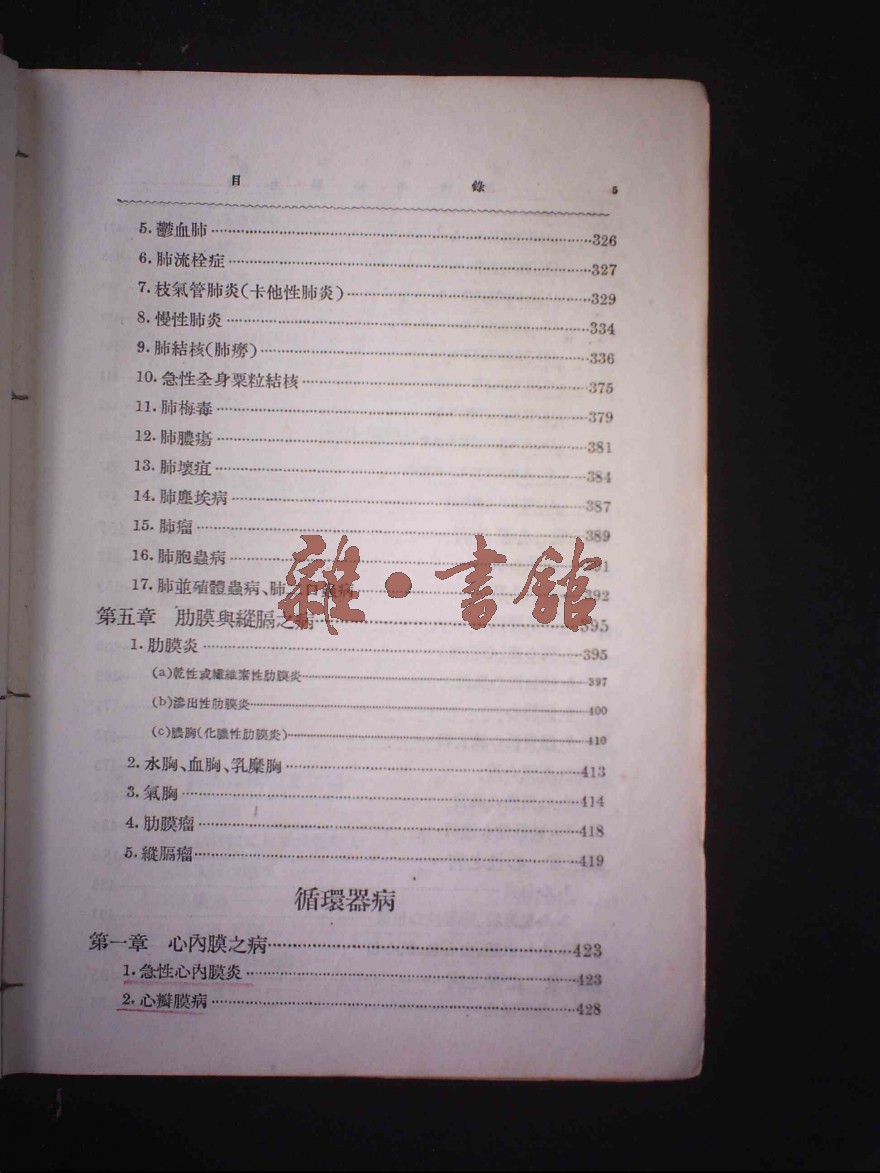 目 錄 5
5. 鬱血肺 326
6. 肺流栓症 327
7. 枝氣管肺炎(卡他性肺炎) 329
8. 慢性肺炎 334
9. 肺結核(肺癆) 336
10. 急性全身粟粒結核 375
11. 肺梅毒 379
12. 肺膿瘍 381
13. 肺壞疽 384
14. 肺塵埃病 387
15. 肺瘤 389
16. 肺胞蟲病 91
17. 肺並殖體蟲病、肺 口蟲病 392
雜·書館
第五章 肋膜與縱膈之病 395
1. 肋膜炎 395
(a)乾性或纖維素性肋膜炎 397
(b)滲出性肋膜炎 400
(c)膿胸(化膿性肋膜炎) 410
2. 水胸、血胸、乳糜胸 413
3. 氣胸 414
4. 肋膜瘤 418
5. 縱膈瘤 419
循環器病
第一章 心內膜之病 423
1. 急性心內膜炎 423
2. 心瓣膜病 428